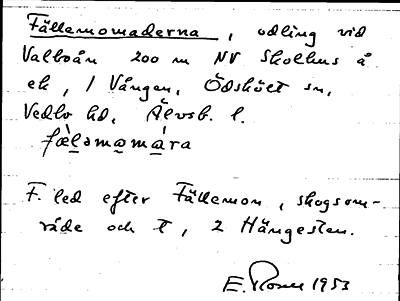 Fällemomaderna, odling vid
Valboån 200 m NV Skolhus å
ek, 1 Vången, Ödskölt sn,
Vedbo hd, Älvsb. l.
fæ̀ləmomára
F. led efter Fällemon, skogsom-
råde och t, 2 Hängesten.
E. 1953